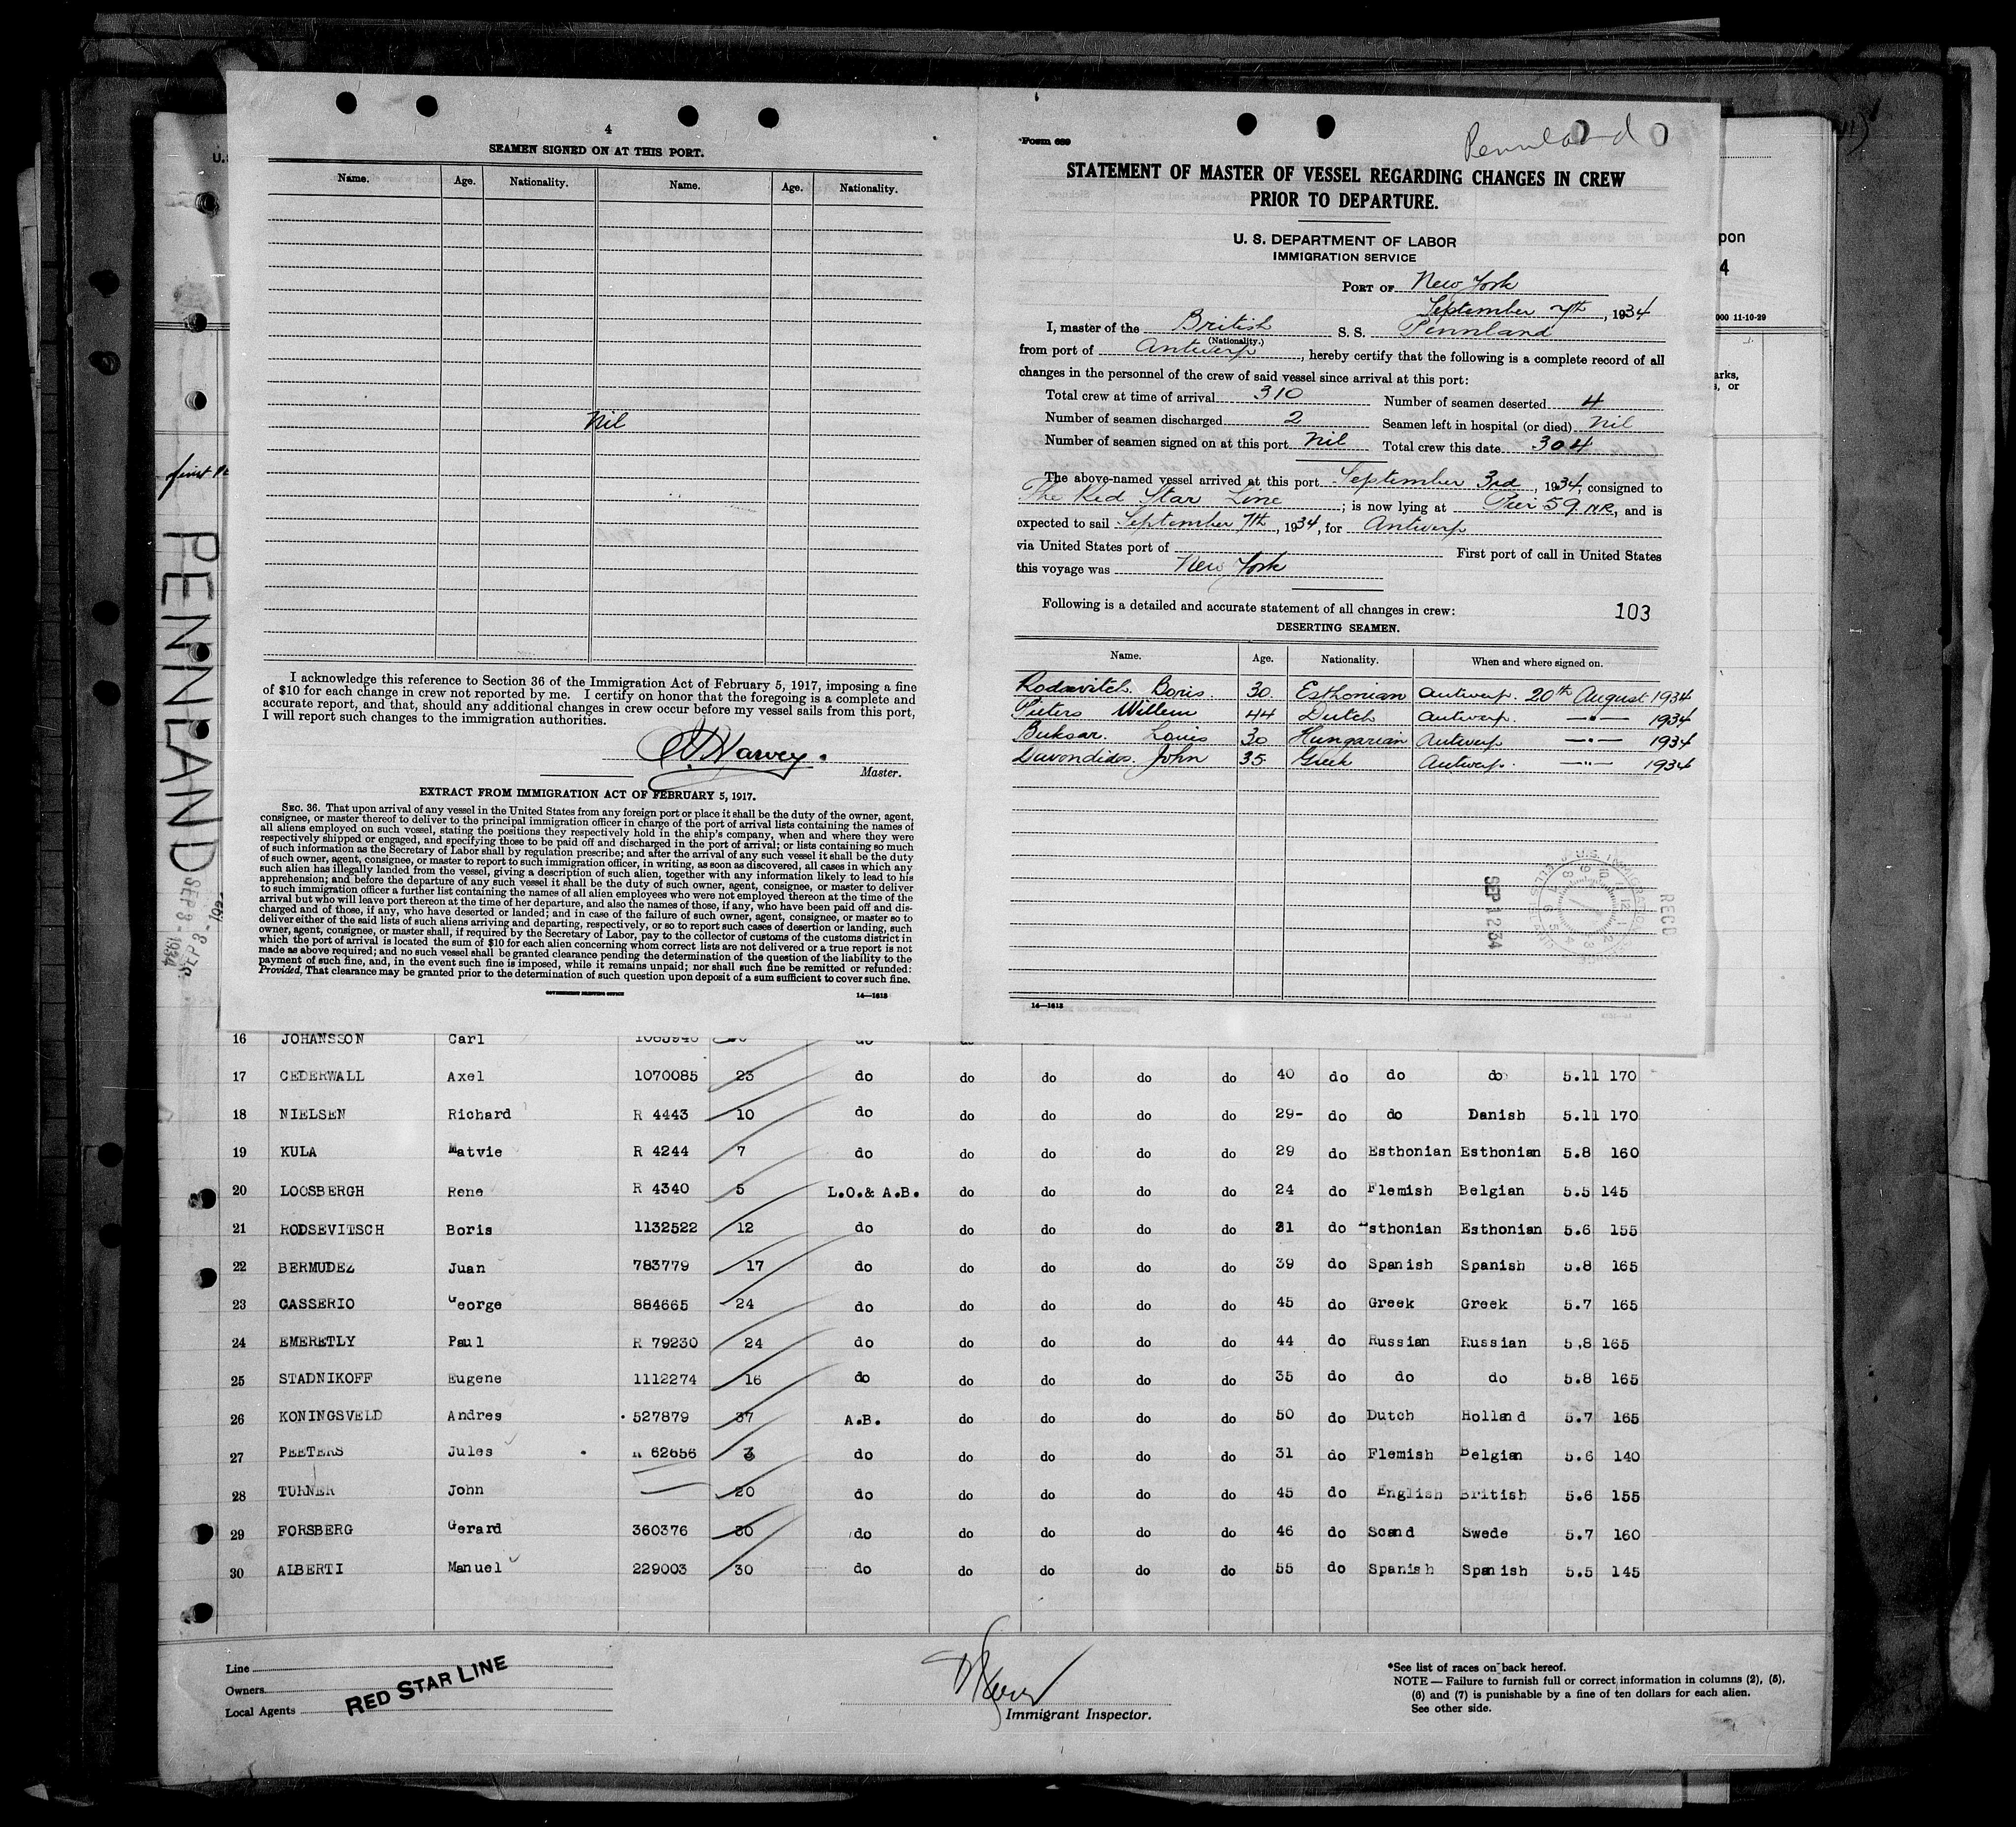 4
SEAMEN SIGNED ON AT THIS PORT.
Name. Age. Nationality. Name. Age. Nationality.
Nil
I acknowledge this reference to Section 36 of the Immigration Act of February 5, 1917, imposing a fine
of $10 for each change in crew not reported by me. I certify on honor that the foregoing is a complete and
accurate report, and that, should any additional changes in crew occur before my vessel sails from this port,
I will report such changes to the immigration authorities.
Harvey.
Master.
EXTRACT FROM IMMIGRATION ACT OF FEBRUARY 5, 1917.
SEC. 36. That upon arrival of any vessel in the United States from any foreign port or place it shall be the duty of the owner, agent,
consignee, or master thereof to deliver to the principal immigration officer in charge of the port of arrival lists containing the names of
all aliens employed on such vessel, stating the positions they respectively hold in the ship's company, when and where they were
respectively shipped or engaged, and specifying those to be paid off and discharged in the port of arrival; or lists containing so much
of such information as the Secretary of Labor shall by regulation prescribe; and after the arrival of any such vessel it shall be the duty
of such owner, agent, consignee, or master to report to such immigration officer, in writing, as soon as discovered, all cases in which any
such alien has illegally landed from the vessel, giving a description of such alien, together with any information likely to lead to his
apprehension; and before the departure of any such vessel it shall be the duty of such owner, agent, consignee, or master to deliver
to such immigration officer a further list containing the names of all alien employees who were not employed thereon at the time of the
arrival but who will leave port thereon at the time of her departure, and also the names of those, if any, who have been paid off and dis-
charged and of those, if any, who have deserted or landed; and in case of the failure of such owner, agent, consignee, or master so to
deliver either of the said lists of such aliens arriving and departing, respectively, or so to report such cases of desertion or landing, such
owner, agent, consignee, or master, shall, if required by the Secretary of Labor, pay to the collector of customs of the customs district in
which the port of arrival is located the sum of $10 for each alien concerning whom correct lists are not delivered or a true report is not
made as above required; and no such vessel shall be granted clearance pending the determination of the question of the liability to the
payment of such fine, and, in the event such fine is imposed, while it remains unpaid; nor shall such fine be remitted or refunded:
Provided, That clearance may be granted prior to the determination of such question upon deposit of a sum sufficient to cover such fine.
GOVERNMENT PRINTING OFFICE 14—1613
Form 689
Pennland
STATEMENT OF MASTER OF VESSEL REGARDING CHANGES IN CREW
PRIOR TO DEPARTURE.
U. S. DEPARTMENT OF LABOR
IMMIGRATION SERVICE
PORT OF New York
September 7th, 1934
I, master of the British S. S. Pennland
(Nationality.)
from port of Antwerp, hereby certify that the following is a complete record of all
changes in the personnel of the crew of said vessel since arrival at this port:
Total crew at time of arrival 310 Number of seamen deserted 4
Number of seamen discharged 2 Seamen left in hospital (or died) Nil
Number of seamen signed on at this port Nil Total crew this date 304
The above-named vessel arrived at this port September 3rd, 1934, consigned to
The Red Star Line; is now lying at Pier 59 NR, and is
expected to sail September 7th, 1934, for Antwerp
via United States port of First port of call in United States
this voyage was New York
Following is a detailed and accurate statement of all changes in crew: 103
DESERTING SEAMEN.
Name. Age. Nationality. When and where signed on.
Rodsevitch. Boris. 30. Esthonian Antwerp. 20th August 1934
Pieters Willem 44 Dutch Antwerp. —"— 1934
Buksar. Louis 30 Hungarian Antwerp —"— 1934
John 35. Greek Antwerp. —"— 1934
SEP 12 34
RECD
14—1613
PENNLAND
SEP 8 - 1934
pon
4
000 11-10-29
arks,
s, or
16 JOHANSSON Carl 1085940 do do
17 CEDERWALL Axel 1070085 23 do do do do do 40 do do do 5.11 170
18 NIELSEN Richard R 4443 10 do do do do do 29- do do Danish 5.11 170
19 KULA Matvie R 4244 7 do do do do do 29 do Esthonian Esthonian 5.8 160
20 LOOSBERGH Rene R 4340 5 L.O.& A.B. do do do do 24 do Flemish Belgian 5.5 145
21 RODSEVITSCH Boris 1132522 12 do do do do do 31 do Esthonian Esthonian 5.6 155
22 BERMUDEZ Juan 783779 17 do do do do do 39 do Spanish Spanish 5.8 165
23 CASSERIO George 884665 24 do do do do do 45 do Greek Greek 5.7 165
24 EMERETLY Paul R 79230 24 do do do do do 44 do Russian Russian 5,8 165
25 STADNIKOFF Eugene 1112274 16 do do do do do 35 do do do 5.8 165
26 KONINGSVELD Andres 527879 37 A.B. do do do do 50 do Dutch Holland 5.7 165
27 PEETERS Jules R 62656 3 do do do do do 31 do Flemish Belgian 5.6 140
28 TURNER John — 20 do do do do do 45 do English British 5.6 155
29 FORSBERG Gerard 360376 30 do do do do do 46 do Scand Swede 5.7 160
30 ALBERTI Manuel 229003 30 do do do do do 55 do Spanish Spanish 5.5 145
Line
Owners
Local Agents
RED STAR LINE
Immigrant Inspector.
*See list of races on back hereof.
NOTE — Failure to furnish full or correct information in columns (2), (5),
(6) and (7) is punishable by a fine of ten dollars for each alien.
See other side.